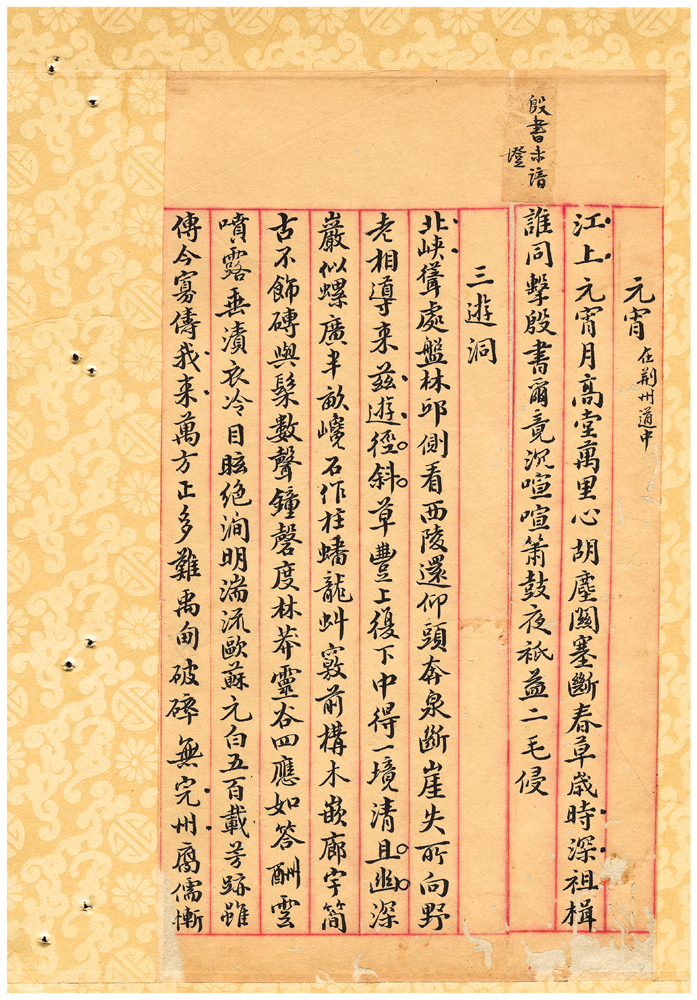 殷書未諳
澄
元宵 在荆州道中
江上元宵月高堂萬里心胡塵關塞斷春草歲時深祖楫
誰同擊殷書爾竟沉喧喧簫鼓夜祇益二毛侵
三遊洞
北峽聳處盤林邱側看西陵還仰頭奔泉斷崖失所向野
老相導来茲遊徑斜草豐上復下中得一境清且幽深
巖似螺廣半畝巉石作柱蟠龍虯竅前構木嵌廊宇簡
古不飾磚與髹數聲鐘磬度林莽靈谷四應如答酬雲
噴露垂漬衣冷目眩绝澗明湍流歐蘇元白五百載芳跡雖
傳今寡儔我来萬方正多難禹甸破碎無完州腐儒慚